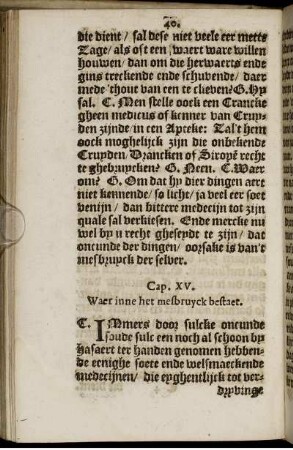 40.
die dient / sal dese niet veele eer metts
Tage / als oft een swaert ware willen
houwen / dan om die herwaerts ende
gins treckende ende schuvende / daer
mede 'thout van een te clieven? G. Hy
sal. C. Men stelle oock een Crancke
gheen medicus of kenner van Cruy-
den zijnde in een Apteke: Tal't hem
oock moghelijck zijn die onbekende
Cruyden, Drancken of Siropē recht
te ghebruycken? G. Neen. C. Waer
om? G. Om dat hy dier dingen aert
niet kennende / so licht / ja veel eer soet
venijn / dan bittere medecijn tot zijn
quale sal verkiesen. Ende mercke nu
wel by u recht gheseydt te zijn / dat
oncunde der dingen / oorsake is van't
mesbruyck der selver.
Cap. XV.
Waer inne het mesbruyck bestaet.
C. IMmers door sulcke oncunde
soude sulc een noch al schoon by
hasaert ter handen genomen hebben-
de eenighe soete ende welsmaeckende
medecijnen / die eyghentlijck tot ver-
dryvinge